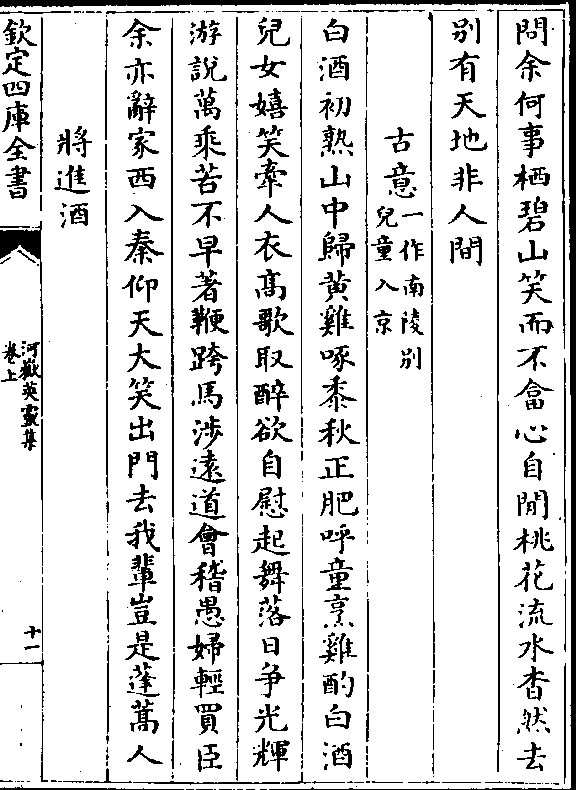 問余何事栖碧山笑而不答心自閒桃花流水杳然去
别有天地非人間
古意一作南陵别
兒童入京
白酒初熟山中歸黄雞啄黍秋正肥呼童烹雞酌白酒
兒女嬉笑牽人衣髙歌取醉欲自慰起舞落日争光輝
游說萬乘苦不早著鞭跨馬涉遠道㑹稽愚婦輕買臣
余亦辭家西入秦仰天大笑出門去我輩豈是蓬蒿人
將進酒
欽定四庫全書
河嶽英靈集
卷上
十一